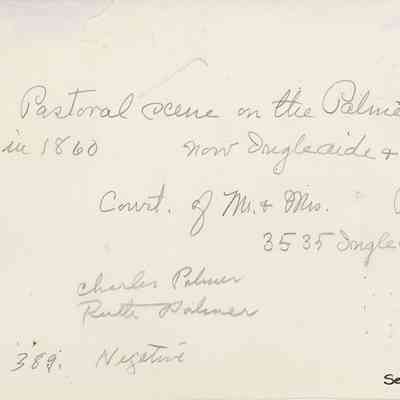 Pastoral scene on the Palme
in 1860 now Ingleside &
Court. of Mr. & Mrs.
3535 Ingle
Charles Palmer
Ruth Palmer
389. Negetive
Se